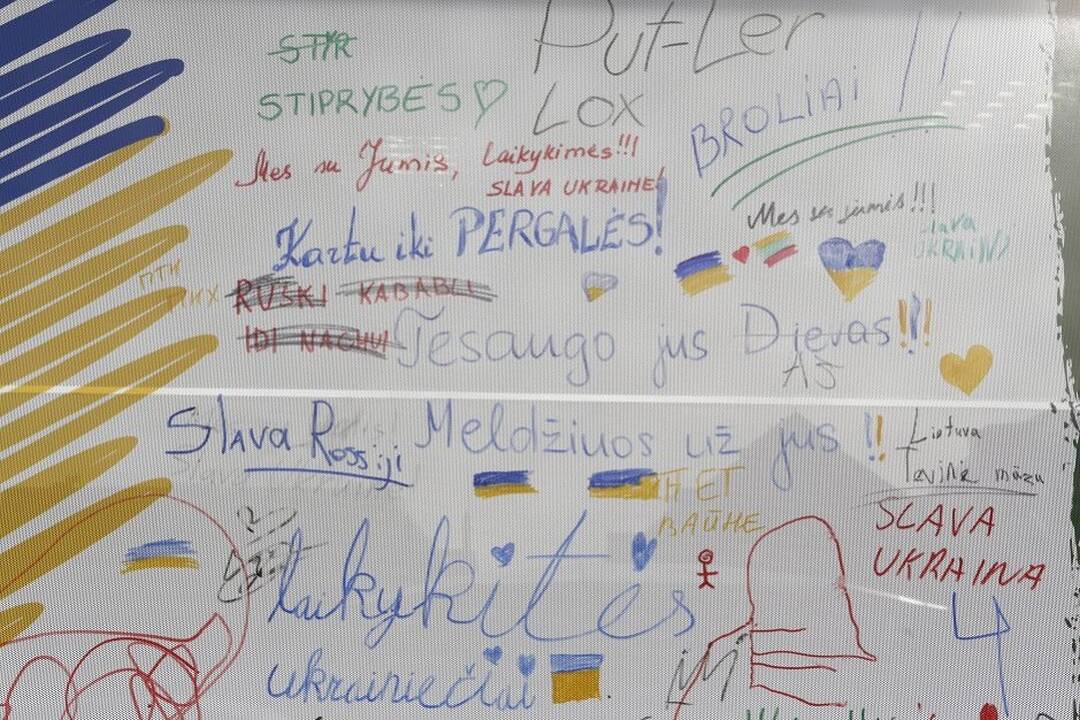 STYR
STIPRYBĖS
Put-Ler
LOX
BROLIAI !!
Mes su Jumis, Laikykimės!!!
SLAVA UKRAINE!
Kartu iki PERGALĖS!
Mes su jumis!!!
Slava
UKRAINI
ПТН
ПХ
RUSKI KABABLI
IDI NACHUI
Tesaugo jus Dievas!!!
AŠ
Slava Rossiji
Meldžiuos už jus !!
Lietuva
Tėvinė mūsų
НЕТ
ВАЙНЕ
SLAVA
UKRAINA
Laikykitės
ukrainiečiai